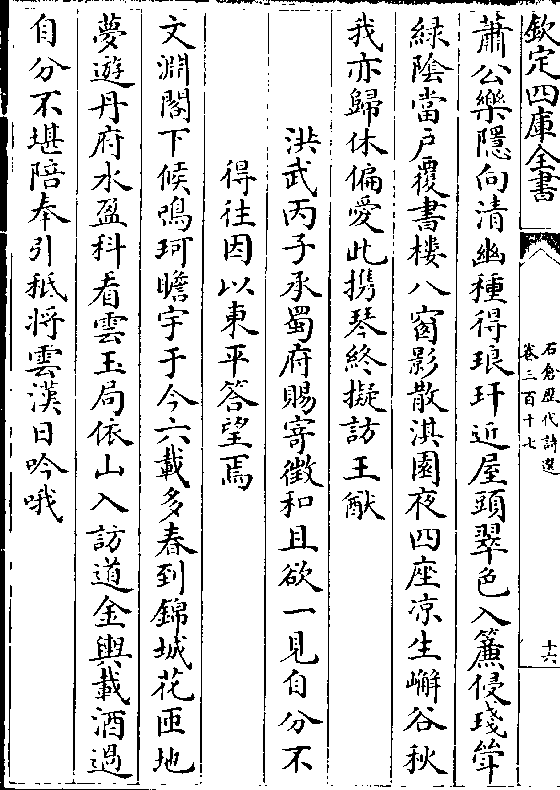 欽定四庫全書
石倉歷代詩選
卷三百十七
十六
蕭公樂隱向清幽種得琅玕近屋頭翠色入簾侵㻏
綠陰當戶覆書樓八窗影散淇園夜四座凉生嶰谷秋
我亦歸休偏愛此携琴終擬訪王猷
洪武丙子承蜀府賜寄徵和且欲一見自分不
得往因以東平答望焉
文淵閣下候鳴珂瞻宇于今六載多春到錦城花匝地
夢遊丹府水盈科看雲玉局依山入訪道金輿載酒過
自分不堪陪奉引秪將雲漢日吟哦